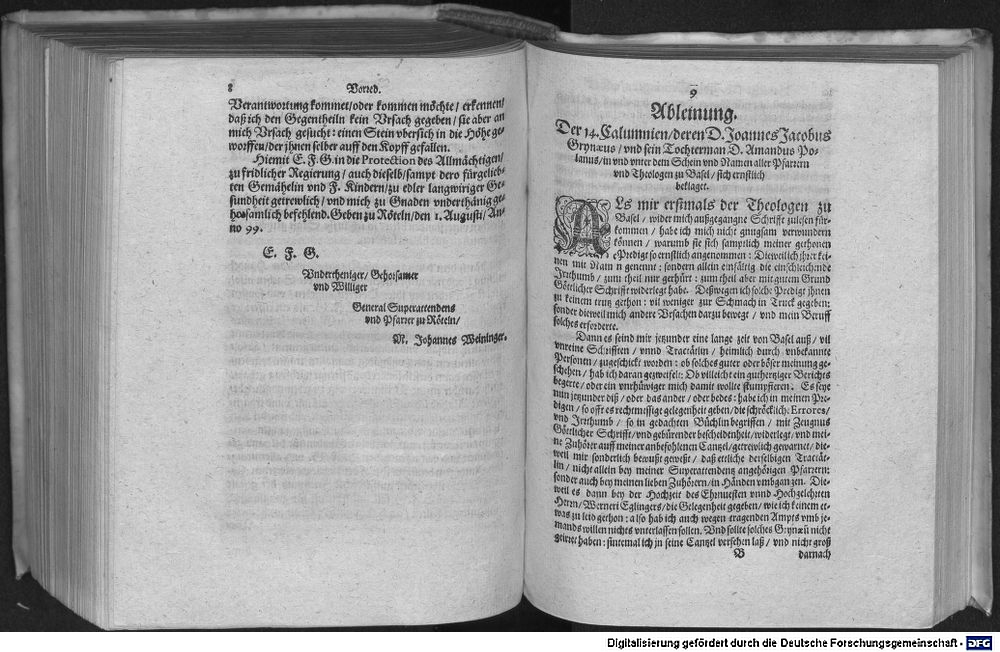 8 Vorred.
Verantwortung kommet/oder kommen möchte/ erkennen/
daß ich den Gegentheiln kein Vrsach gegeben/ sie aber an
mich Vrsach gesucht: einen Stein vbersich in die Höhe ge-
worffen/der jhnen selber auff den Kopff gefallen.
Hiemit E. F. G. in die Protection des Allmächtigen/
zu fridlicher Regierung/ auch dieselb/sampt dero fürgelieb-
ten Gemähelin vnd F. Kindern/zu edler langwiriger Ge-
sundheit getrewlich/ vnd mich zu Gnaden vnderthänig ge-
horsamlich befehlend. Geben zu Röteln/den 1. Augusti/ An-
no 99.
E. F. G.
Vndertheniger/ Gehorsamer
vnd Williger
General Superattendens
vnd Pfarrer zu Röteln/
M. Johannes Weininger.
9
Ableinung.
Der 14. Calumnien/ deren D. Joannes Jacobus
Grynæus/ vnd sein Tochterman D. Amandus Po-
lanus/in vnd vnter dem Schein vnd Namen aller Pfarrern
vnd Theologen zu Basel/ sich ernstlich
beklaget.
ALs mir erstmals der Theologen zu
Basel/ wider mich außgegangne Schrifft zulesen für-
kommen/ habe ich mich nicht gnugsam verwundern
können/ warumb sie sich samptlich meiner gethonen
Predigt so ernstlich angenommen: Dieweil ich jhrer kei-
nen mit Namen genennt: sondern allein einfältig die einschleichende
Irrthumb/ zum theil nur gerhürt: zum theil aber mit gutem Grund
Göttlicher Schrifft widerlegt habe. Deßwegen ich solche Predigt jhnen
zu keinem trutz gethon: vil weniger zur Schmach in Truck gegeben:
sonder dieweil mich andere Vrsachen darzu bewegt/ vnd mein Beruff
solches erforderte.
Dann es seind mir jetzunder eine lange zeit von Basel auß/ vil
vnreine Schrifften/ vnnd Tractätlin/ heimlich durch vnbekannte
Personen/ zugeschickt worden: ob solches guter oder böser meinung ge-
schehen/ hab ich daran gezweifelt: Ob villeicht ein guthertziger Berichts
begerte/ oder ein vnrhüwiger mich damit wollte stumpfieren. Es seye
nun jetzunder diß/ oder das ander/ oder bedes: habe ich in meinen Pre-
digen/ so offt es rechtmessige gelegenheit geben/ die schröckliche Errores/
vnd Irrthumb/ so in gedachten Büchlin begriffen/ mit Zeugnus
Göttlicher Schrifft/ vnd gebürender bescheidenheit/ widerlegt/ vnd mei-
ne Zuhörer auff meiner anbefohlenen Cantzel/getrewlich gewarnet/ die-
weil mir sonderlich bewußt geweßt/ daß ettliche derselbigen Tractät-
lin/ nicht allein bey meiner Superattendentz angehörigen Pfarrern:
sonder auch bey meinen lieben Zuhörern/in Händen vmbgangen. Die-
weil es dann bey der Hochzeit des Ehrnuesten vnnd Hochgelehrten
Herrn/ Werneri Eglingers/ die Gelegenheit gegeben/ wie ich keinem et-
was zu leid gethon: also hab ich auch wegen tragenden Ampts vmb je-
mands willen nichts vnterlassen sollen. Vnd sollte solches Grynæū nicht
geirret haben: sintemal ich jn seine Cantzel versehen laß/ vnd nicht groß
B darnach
Digitalisierung gefördert durch die Deutsche Forschungsgemeinschaft - DFG